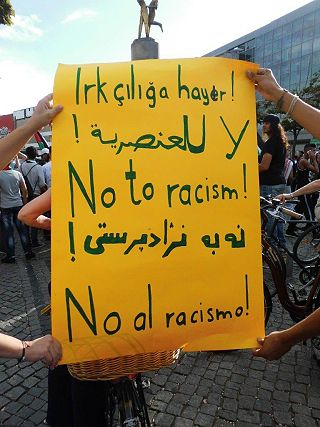 Irkçılığa hayır!
لا للعنصرية!
No to racism!
نه به نژادپرستی!
No al racismo!